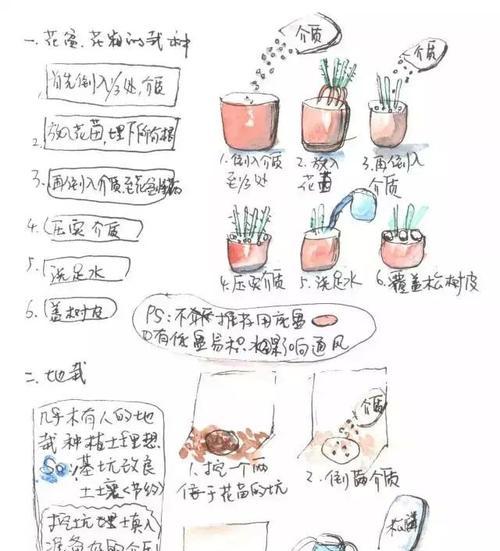 一.花盆.花箱的栽种
介质
介质
1.首先倒入1/3处,介质
2.放入花苗,埋下所有根
3.再倒入介质至花盆
4.压实介质
5.浇足水
6.盖树皮
1.倒入介质
至1/3处
2.放入
花苗
3.再倒入
介质
4.压实介质
5.浇足水
6.覆盖松树皮
PS:不推荐用底盘
①有底盘易积水影响通风
二.地栽
几乎木有人的地
栽种植土理想
So,基坑改良
土壤<节约>
挖坑埋土填入
准备好的介质
介质
1.挖一个两
倍于花苗的坑
2.倒入介质
松鳞